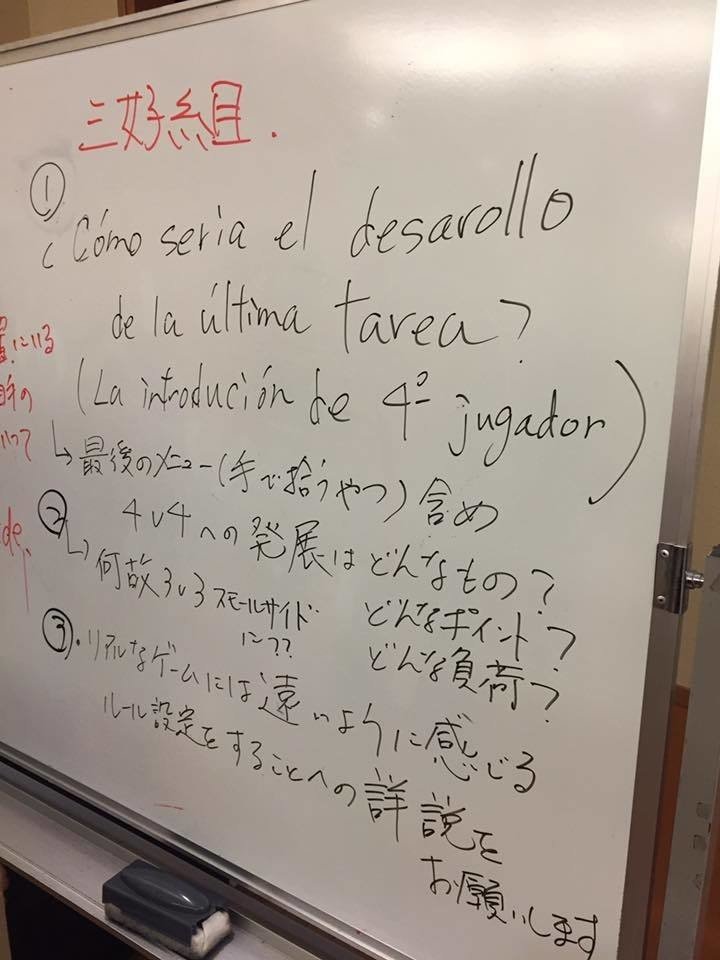 三好組.
① ¿Cómo seria el desarollo
de la última tarea?
(La introdución de 4º jugador)
↳ 最後のメニュー(手で拾うやつ)含め
② 4v4への発展はどんなもの?
↳ 何故3v3スモールサイド
に??
どんなポイント?
どんな負荷?
③. リアルなゲームには遠いように感じる
ルール設定をすることへの詳説を
お願いします
にいる
の
って
de,